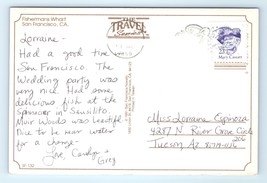 Fishermans Wharf
San Francisco, CA.
THE
TRAVEL
Lorraine -
Had a good time in
San Francisco. The
Wedding party was
very nice. Had some
delicious fish at the
Spinnaker in Sausilito.
Muir Woods was beautiful
Nice to be near water
for a change -
Love, Carolyn +
Greg
Mary Cassatt
Miss Lorraine Espinoza
4287 N. River Grove Circle
206
Tucson, Az